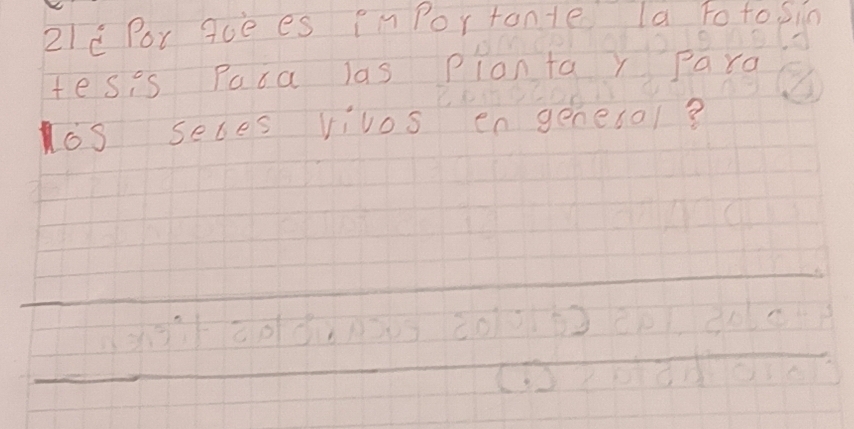 2) ¿ Por què es imPortante la Fotosin
tesis Para las Planta y Para
los seres vivos en general?